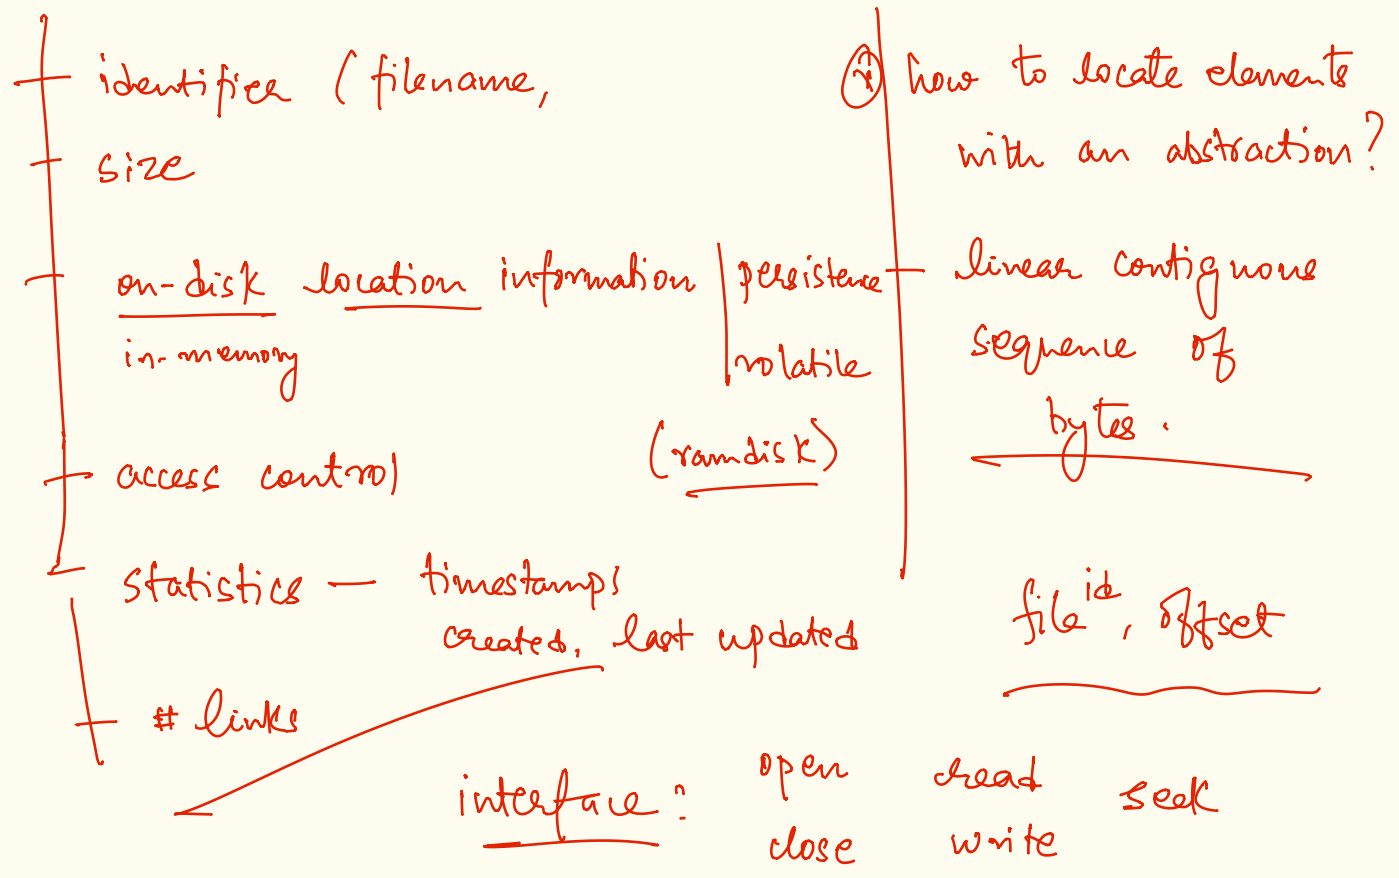 identifier (filename,
size
on-disk location information
in-memory
persistence
volatile
(ramdisk)
access control
statistics — timestamps
created, last updated
# links
how to locate elements
with an abstraction?
linear contiguous
sequence of
bytes.
file id, offset
interface:
open read seek
close write